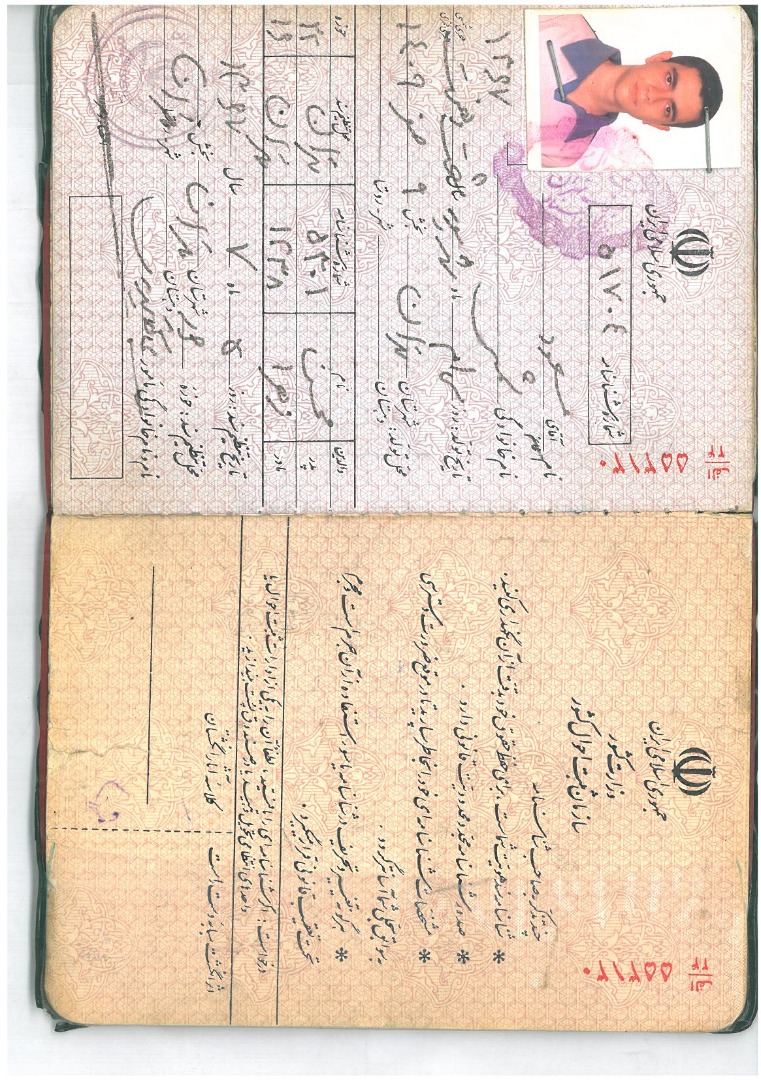 الف
۲۴
۵۵۳۱۳۰
جمهوری اسلامی ایران
وزارت کشور
سازمان ثبت احوال کشور
چند تذکر به صاحب شناسنامه
* شناسنامه سند هویت شماست ، برای حفظ حقوق خود بدقت از آن نگهداری کنید .
* صدور شناسنامه مجدد محدودیت قانونی دارد .
* مشخصات شناسنامه ای خود را بخاطر بسپارید تا در موقع ضرورت دسترسی
به سوابق سجلی شما آسانتر گردد .
* هرگونه تغییر و تحریف در شناسنامه یا سوء استفاده از آن جرم است و مجرم
تحت تعقیب قانونی قرار میگیرد .
درخواست : اگر شناسنامه ای را یافتید ، لطفاً آن را به یکی از ادارات ثبت احوال یا
واحدهای انتظامی تحویل دهید یا در صندوق پست بیندازید .
اثر انگشت سبابه دست راست
کلاسه آثار انگشتان
الف
۲۴
۵۵۳۱۳۰
جمهوری اسلامی ایران
شماره شناسنامه ۵۱۷۰۴
نام آقای مسعود
خانم
نام خانوادگی شمس
۱۳۶۷
تاریخ تولد : روز سی ام ماه شهریور سال شصت و هفت
هجری شمسی
محل تولد : شهرستان تهران بخش ۹ صفر ۱۴۰۹
دهستان شهر - روستا
والدین نام شماره شناسنامه محل تنظیم سند حوزه
پدر محسن ۵۳۰۱ تهران ۲۲
مادر زهرا ۱۲۳۸ تهران ۱۶
تاریخ تنظیم سند : روز ۵ ماه ۷ سال ۱۳۶۷
محل تنظیم سند : حوزه شهرستان تهران بخش
دهستان شهر - روستا تهران
نام و نام خانوادگی مأمور